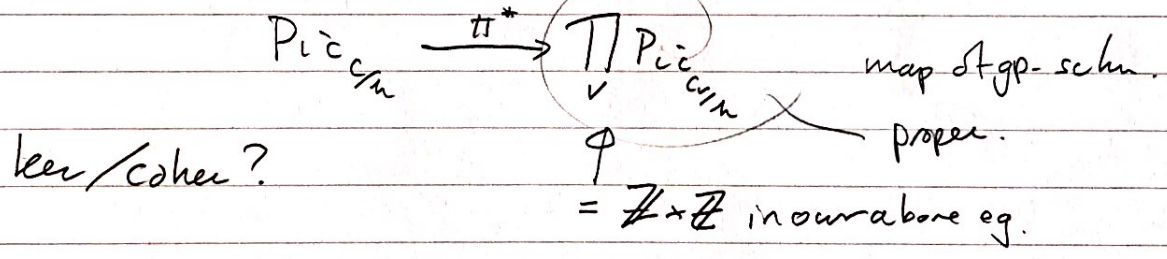 Pic_{C/k} \xrightarrow{\pi^*} \prod_v Pic_{C_v/k} map of gp-schm.
proper.
ker/coker?
= ℤ×ℤ in our above eg.